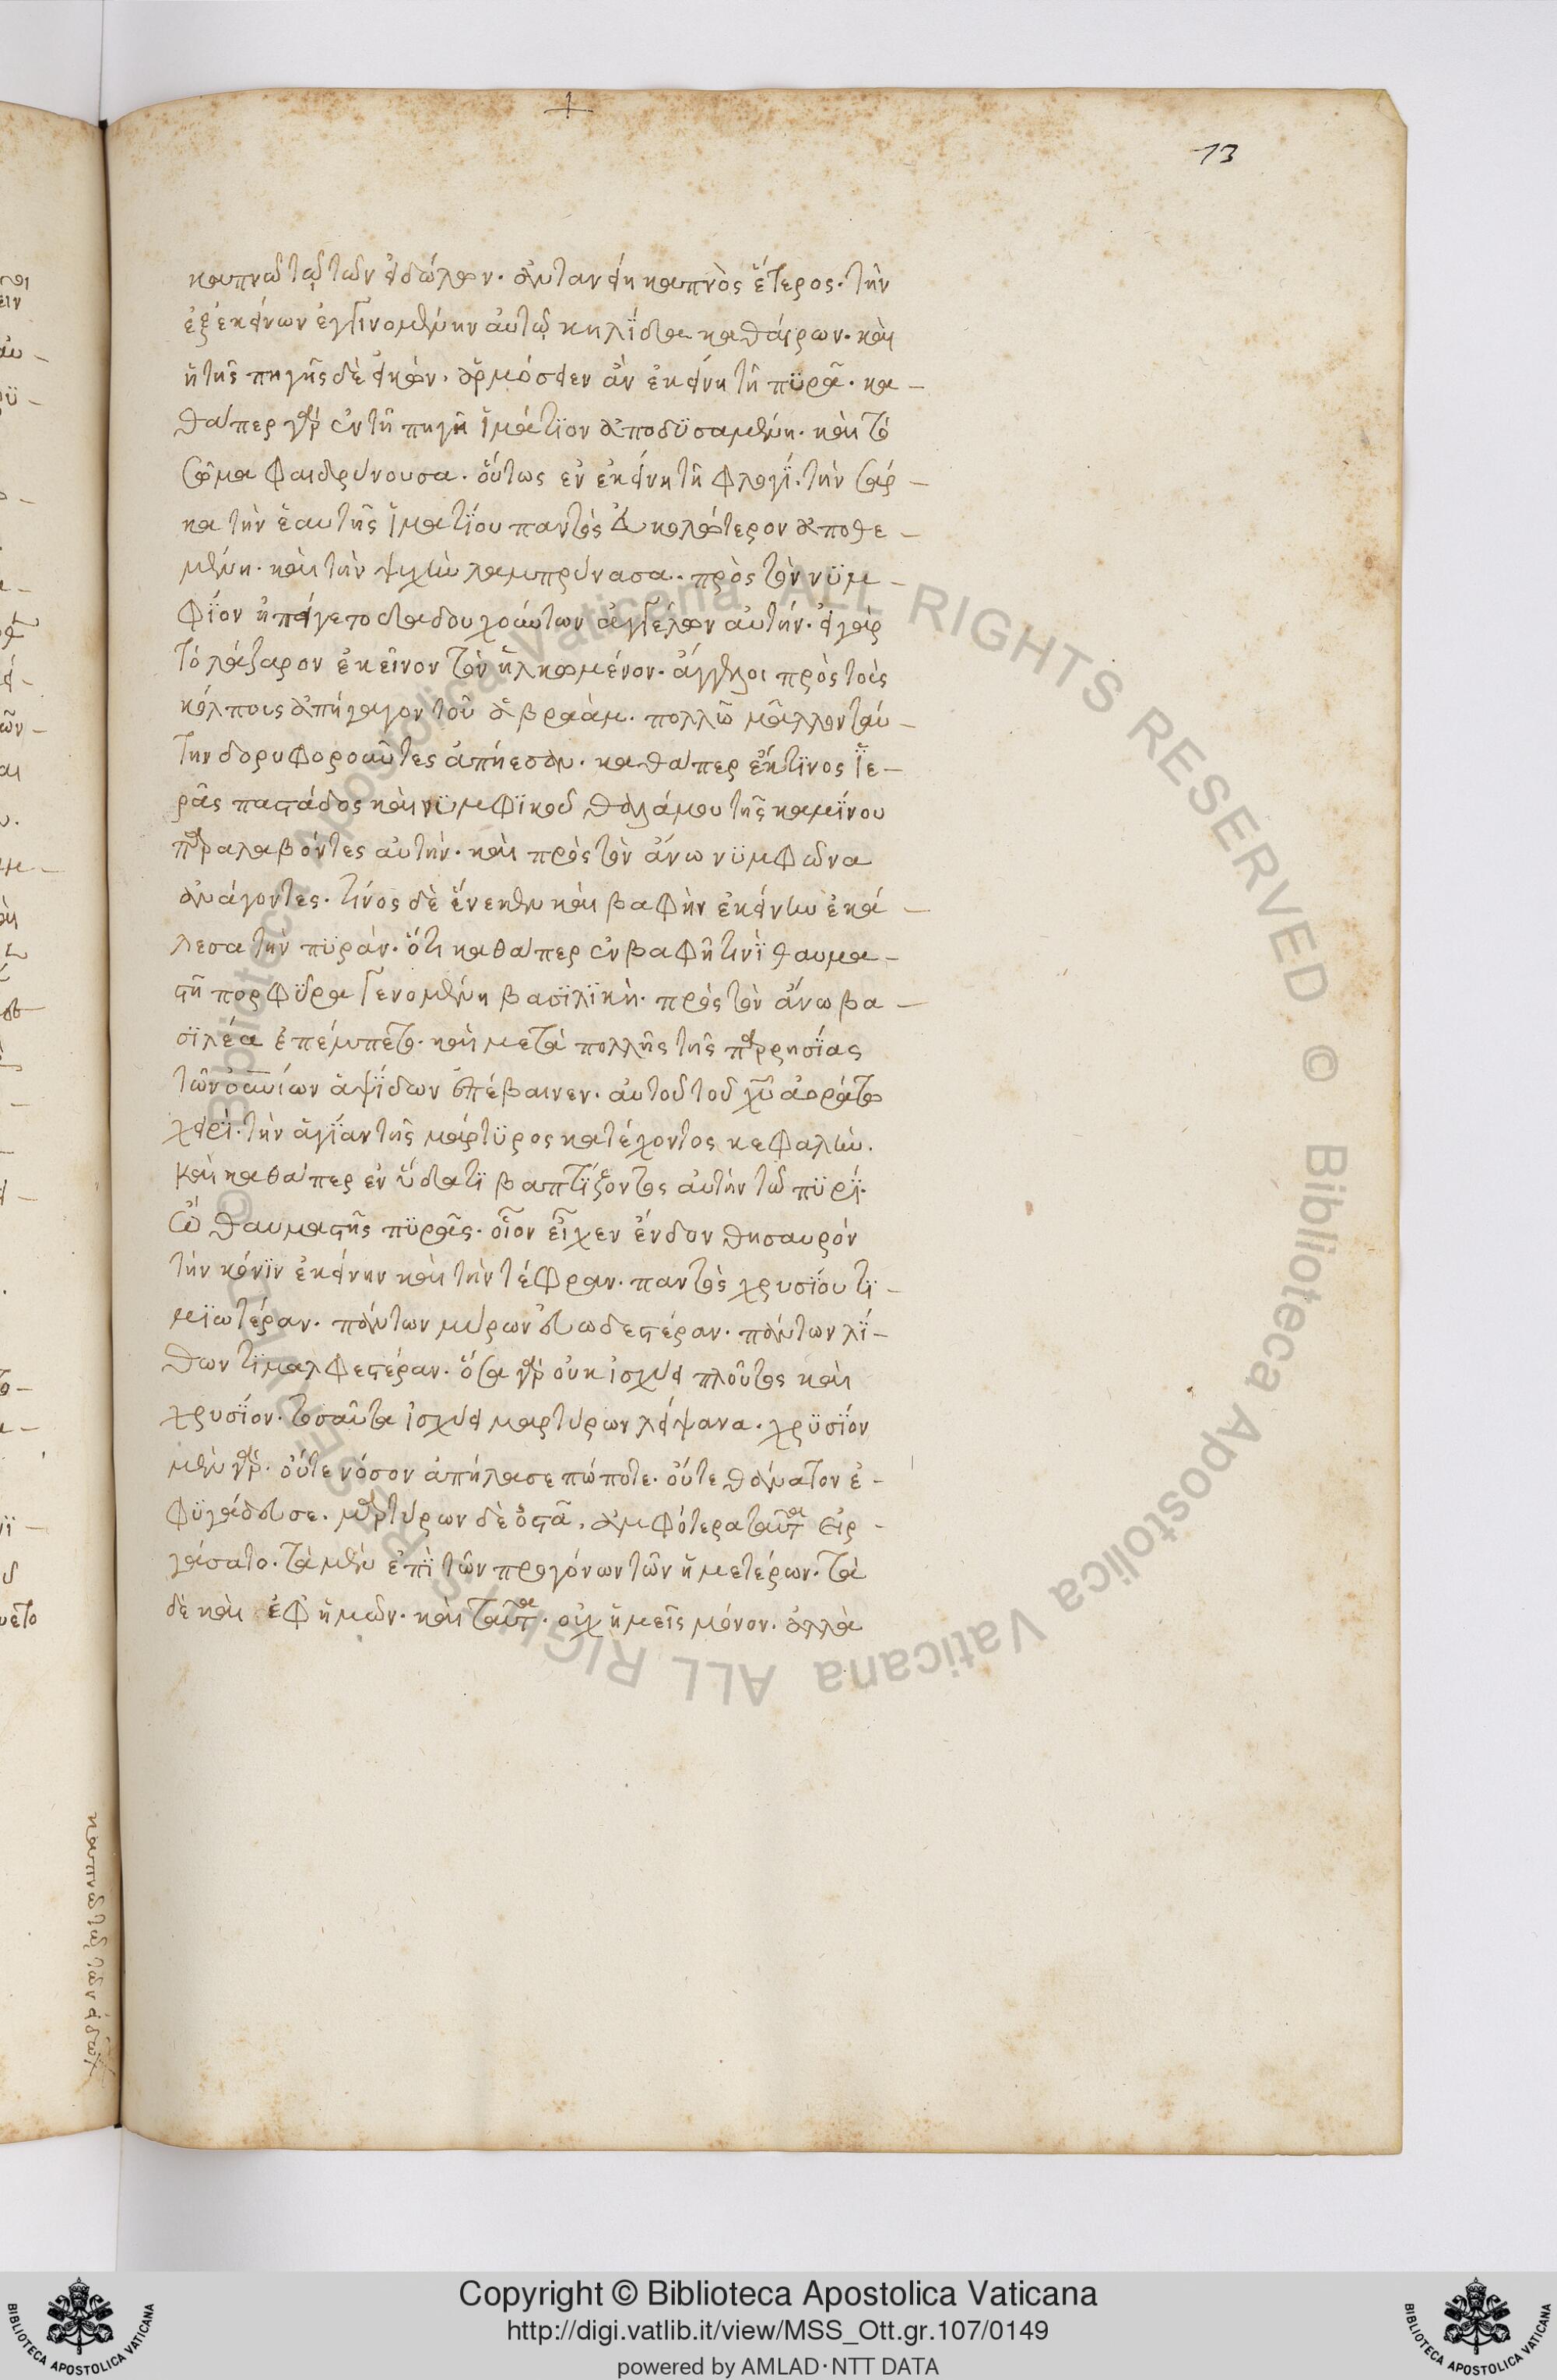 13
καπνῶ τῶ τῶν εἰδώλων. ἀνταυγεῖ καπνὸς ἕτερος. τὴν
ἐξ ἐκείνων ἐγγινομένην αὐτῶ κηλίδα καθαίρων. καὶ
ἡ τῆς πηγῆς δὲ εἰκὼν. ἁρμόσειεν ἂν ἐκείνη τῆ πϋρᾶ. κα -
θάπερ γὰρ ἐν τῆ πηγῆ ἱμάτϊον ἀποδϋσαμένη. καὶ τὸ
σῶμα φαιδρύνουσα. οὕτως ἐν ἐκείνη τῆ φλογΐ. τὴν σάρ -
κα τὴν ἑαυτῆς ἱματΐου παντὸς εὐκολώτερον ἀποθε -
μένη. καὶ τὴν ψυχὴν λαμπρύνασα. πρὸς τὸν νϋμ -
φΐον ἠπείγετο δαδουχούντων ἀγγέλων αὐτήν. εἰ γὰρ
τὸ λάζαρον ἐκεῖνον τὸν ἡλκωμένον. ἄγγελοι πρὸς τοὺς
κόλπους ἀπήγαγον τοῦ ἀβραάμ. πολλῶ μᾶλλον ταύ -
την δορυφοροῦντες ἀπήεσαν. καθάπερ ἐκ τϊνος ἱε -
ρᾶς παστάδος καὶ νϋμφϊκοῦ θαλάμου τῆς καμΐνου
παραλαβόντες αὐτήν. καὶ πρὸς τὸν ἄνω νϋμφῶνα
ἀνάγοντες. τίνος δὲ ἕνεκεν καὶ βαφὴν ἐκείνην ἐκά -
λεσα τὴν πϋράν. ὅτι καθάπερ ἐν βαφῆ τινὶ θαυμα -
στῆ πορφϋρα γενομένη βασϊλϊκὴ. πρὸς τὸν ἄνω βα -
σϊλέα ἐπέμπετο. καὶ μετὰ πολλῆς τῆς παρρησΐας
τῶν οὐνίων ἀψΐδων ἐπέβαινεν. αὐτοῦ τοῦ χῦ ἀοράτω
χειρΐ. τὴν ἁγΐαν τῆς μάρτϋρος κατέχοντος κεφαλήν.
Καὶ καθάπερ ἐν ὕδατϊ βαπτΐζοντος αὐτὴν τῶ πϋρΐ.
Ὢ θαυμαστῆς πϋρᾶς. οἷον εἶχεν ἔνδον θησαυρόν
τὴν κόνϊν ἐκείνην καὶ τὴν τέφραν. παντὸς χρυσΐου τϊ -
μϊωτέραν. πάντων μύρων εὐωδεστέραν. πάντων λΐ -
θων τϊμαλφεστέραν. ὅσα γὰρ οὐκ ἰσχύει πλοῦτος καὶ
χρυσΐον. τοσαῦτα ἰσχύει μαρτύρων λείψανα. χρϋσΐον
μὲν γὰρ. οὔτε νόσον ἀπήλασε πώποτε. οὔτε θάνατον ἐ -
φϋγάδευσε. μαρτύρων δὲ ὀστᾶ, ἀμφότερα ταῦτα εἰρ -
γάσατο. τὰ μὲν ἐπὶ τῶν προγόνων τῶν ἡμετέρων. τὰ
δὲ καὶ ἐφ ἡμῶν. καὶ ταῦτα. οὐχ ἡμεῖς μόνον. ἀλλὰ
καπνῶ τῶ τῶν εἰδώλ
© Biblioteca Apostolica Vaticana ALL RIGHTS RESERVED © Biblioteca Apostolica Vaticana ALL RIGHTS RESERVED
Copyright © Biblioteca Apostolica Vaticana
http://digi.vatlib.it/view/MSS_Ott.gr.107/0149
powered by AMLAD·NTT DATA
BIBLIOTECA APOSTOLICA VATICANA
BIBLIOTECA APOSTOLICA VATICANA